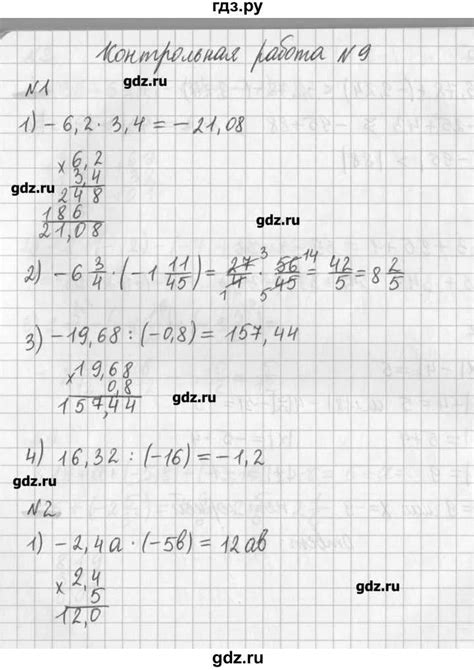 гдз.ру
Контрольная работа №9
gdz.ru
№1
1) -6,2 · 3,4 = -21,08
× 6,2
3,4
gdz.ru
248
186
21,08
gdz.ru
2) -6 3/4 · (-1 11/45) = 27/4 · 56/45 = 42/5 = 8 2/5
3 14
1 5
3) -19,68 : (-0,8) = 157,44
× 19,68
0,8
157,44
gdz.ru
4) 16,32 : (-16) = -1,2
gdz.ru
№2
1) -2,4a · (-5b) = 12ab
× 2,4
5
12,0
gdz.ru
gdz.ru